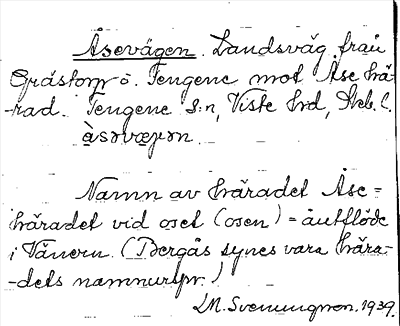 Åsevägen. Landsväg från
Grästorp o. Tengene mot Åse hä-
rad. Tengene s:n, Viste hrd, Skb. l.
åsəvægən.
Namn av häradet Åse=
häradet vid oset (osen) = åutflöde
i Vänern. (Bergås synes vara hära-
dets namnurspr.)
LM. Svenungsson. 1939.